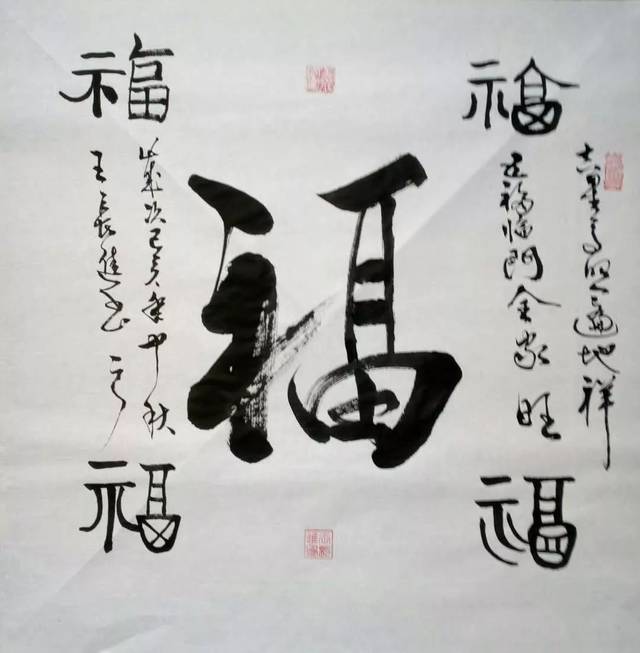 福
吉星高照遍地祥
五福临门全家旺
福
福
福
歲次己亥年中秋
王長進書
福